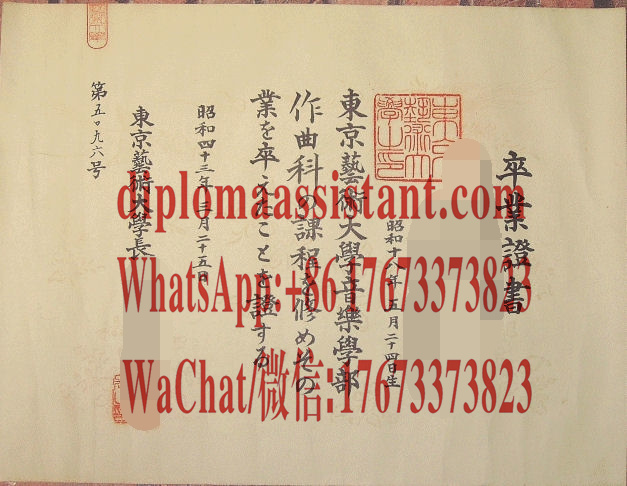 卒業證書
昭和十八年五月二十四日生
東京藝術大學音樂學部
作曲科の課程を修めその
業を卒えたことを證する
昭和四十三年三月二十五日
東京藝術大學長
第五〇九六号
diplomaassistant.com
WhatsApp:+8617673373823
WaChat/微信:17673373823